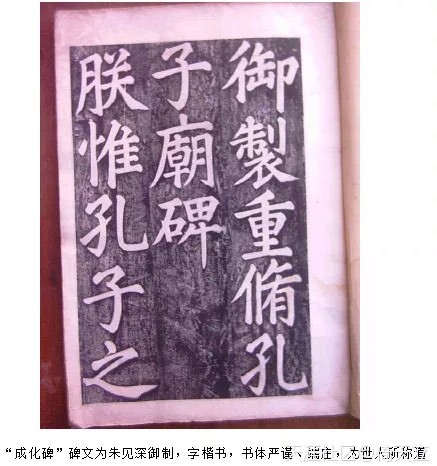 御製重脩孔
子廟碑
朕惟孔子之
“成化碑”碑文为朱见深御制，字楷书，书体严谨、端注，为世人所称道